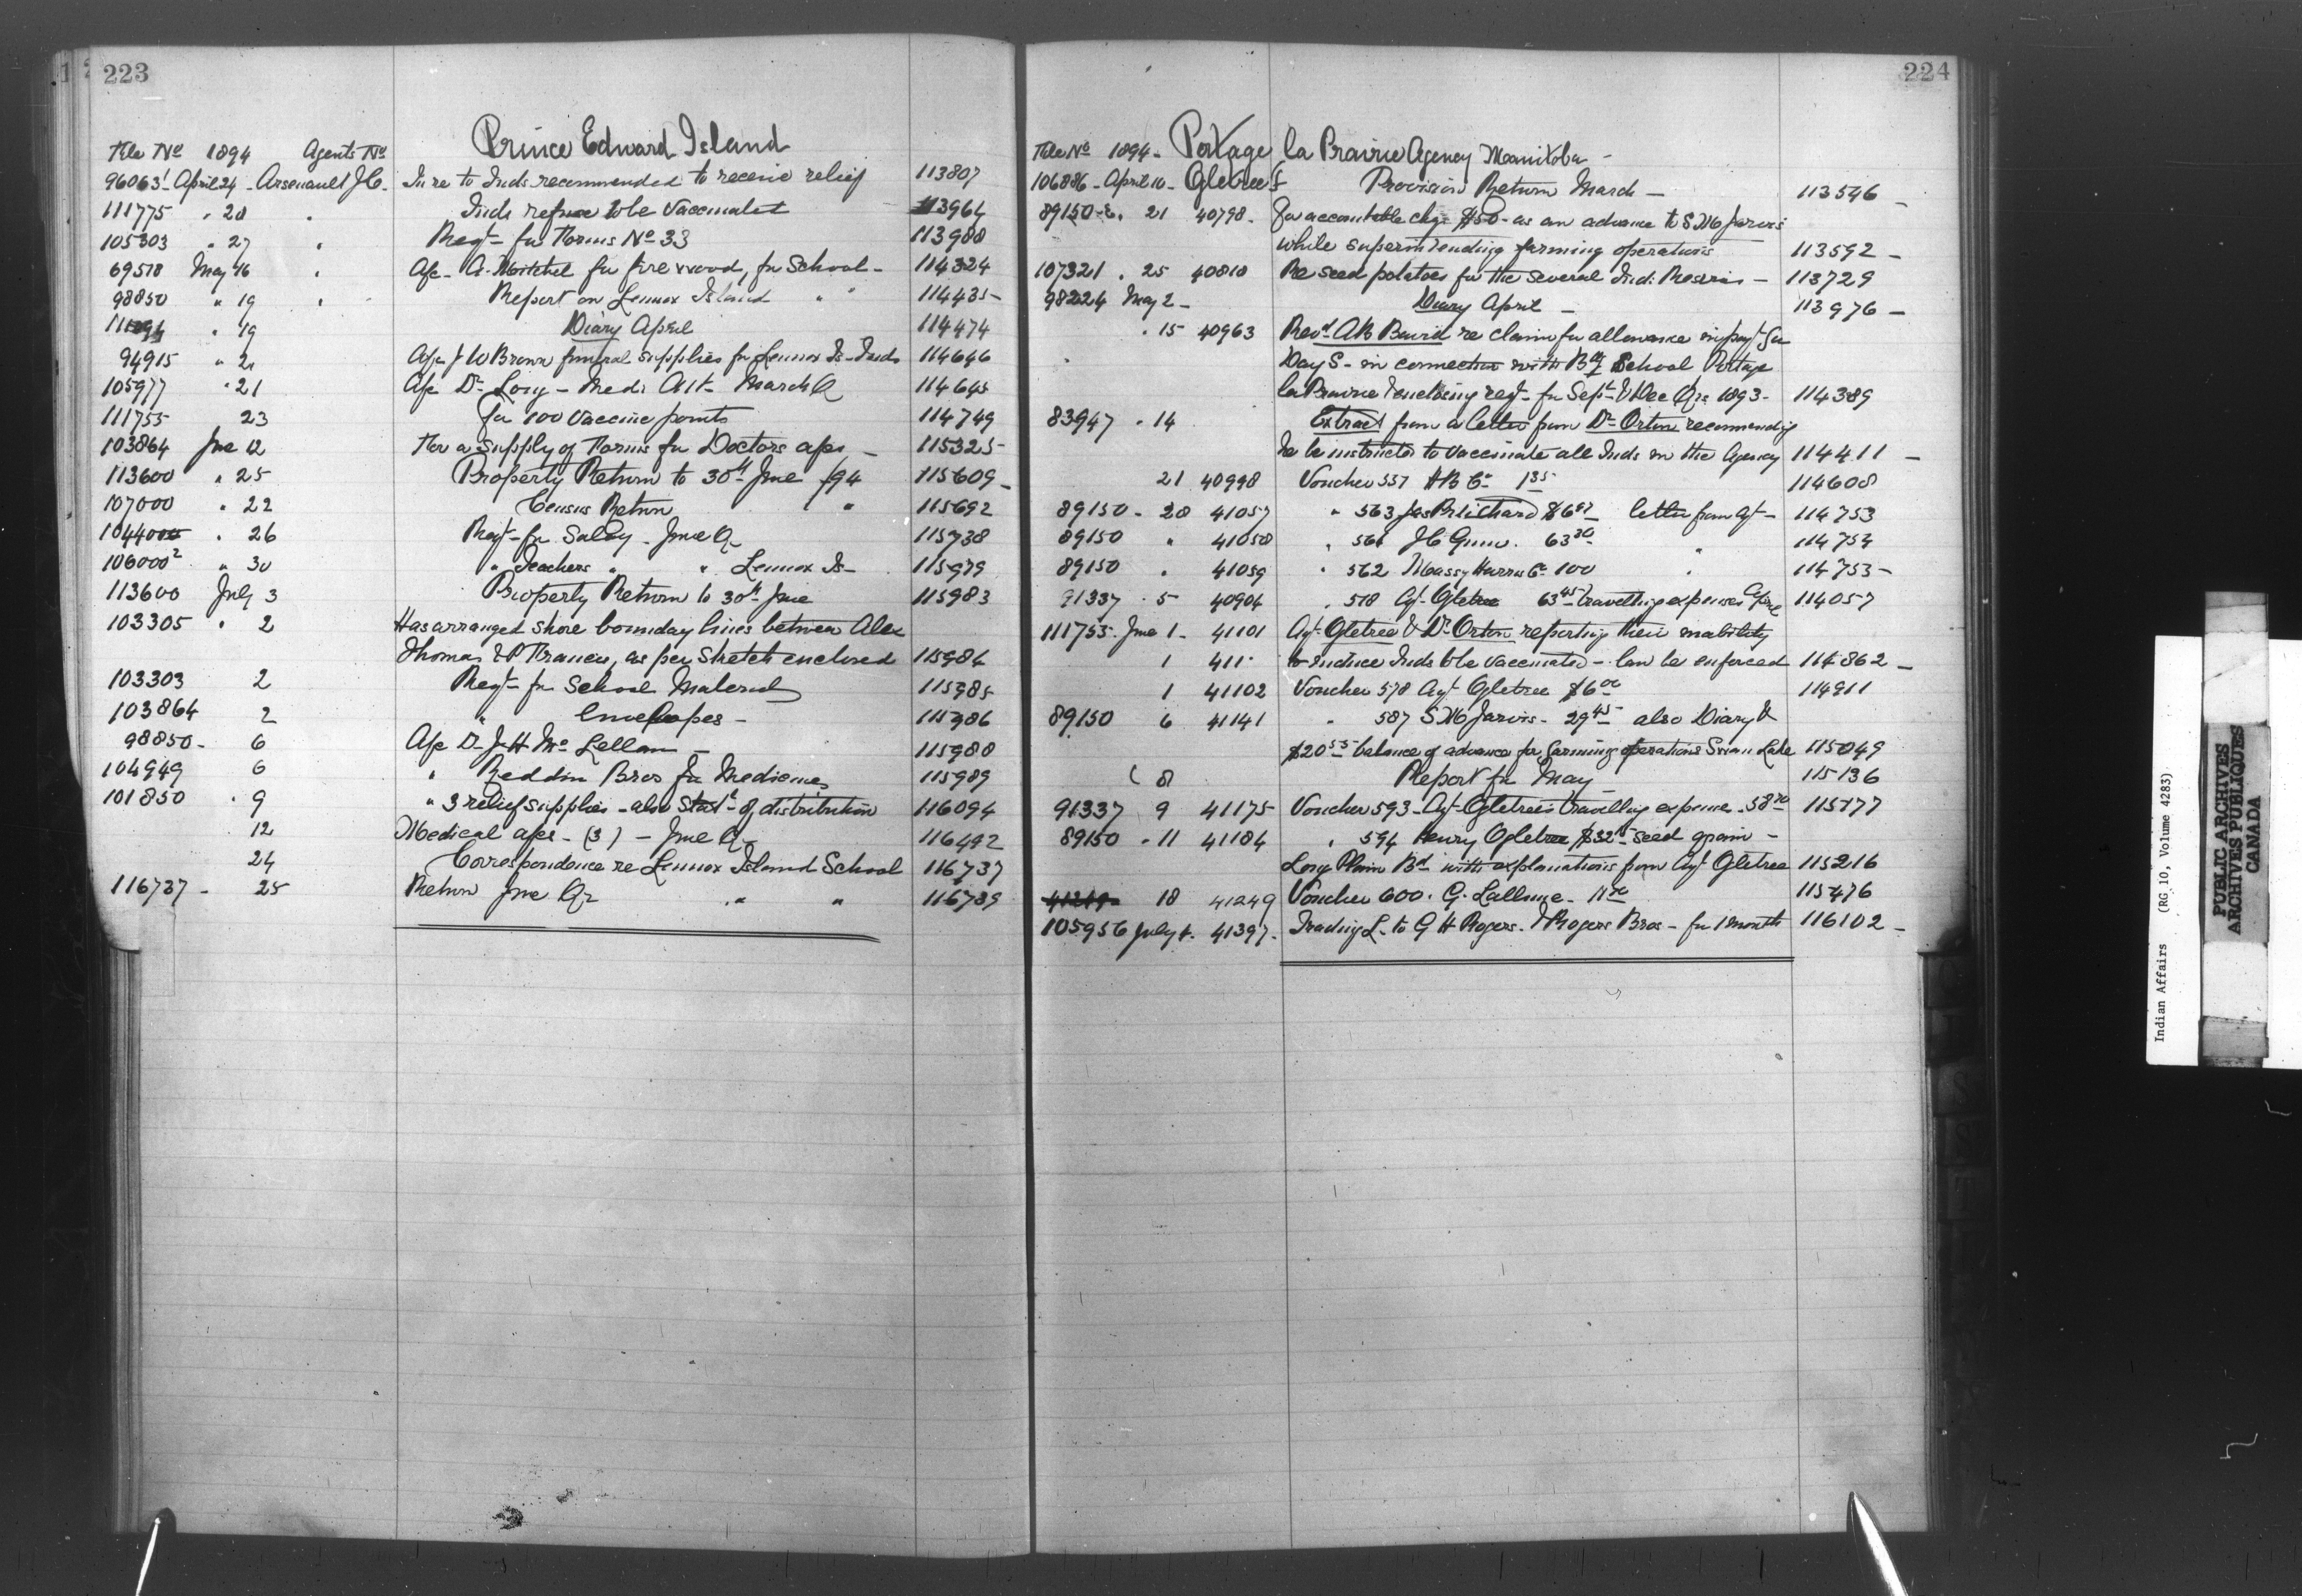 223
Prince Edward Island
File No 1894 Agents No
96063 April 24 Arsenault J.O. In re to Inds recommended to receive relief 113807
111775 " 28 " Inds refuse to be Vaccinated 113964
105303 " 27 " Reqt for Forms No 33 113988
69518 May 16 " A/c A. Mitchel for fire wood, for School 114324
98850 " 19 " Report on Lennox Island " " 114435
" 19 Diary April 114474
94915 " 21 A/c J W Brown funeral supplies for Lennox Is Inds 114646
105977 " 21 A/c Dr Medi Att March Q 114645
111755 23 For 100 Vaccine points 114749
103864 June 12 For a supply of Forms for Doctors a/cs 115325
113600 " 25 Property Return to 30th June /94 115609
107000 " 22 Census Return " 115692
" 26 Reqt for Saley June Qr 115738
106000² " 30 " Teachers " " Lennox Is 115979
113600 July 3 Property Return to 30th June 115983
103305 " 2 Has arranged shore bounday lines between Alex
Thomas & P Francis, as per Sketch enclosed 115984
103303 2 Reqt for School Material 115985
103864 2 " Envelopes 115986
98850 6 A/c Dr J H Mc Lellan 115988
104949 6 " Reddin Bros for Medicines 115989
101850 " 9 " 3 relief supplies also Statt of distribution 116094
12 Medical a/cs (3) June Qr 116492
24 Correspondence re Lennox Island School 116737
116737 25 Return June Qr " " 116789
224
Portage la Prairie Agency Manitoba
File No 1894
106886 April 10 Ogletree F Provision Return March 113546
89150-2 " 21 40798 For accountable chqe $50 as an advance to S M Jarvis
while superintending farming operations 113592
107321 " 25 40810 Re seed potatoes for the several Ind. Reserves 113729
98224 May 2 Diary April 113976
" 15 40963 Revd A B Baird re claim for allowance in payt for
Day S in connection with Bdg School Portage
la Prairie enclosing reqt for Sept & Dec Qrs 1893 114389
83947 " 14 Extract from a letter from Dr Orton recommending
he be instructed to vaccinate all Inds in the Agency 114411
21 40998 Voucher 557 H B Co 1 35 114608
89150 " 28 41057 " 563 Jas Pritchard $6 letter from Agt 114753
89150 " 41058 " 561 J C Gunn 63 30 " 114754
89150 " 41059 " 562 Massy Harris Co 100 " 114753
91337 " 5 40904 " 518 Agt Ogletree 63 45 travelling expenses 114057
111755 June 1 41101 Agt Ogletree & Dr Orton reporting their inability
1 411 to induce Inds to be vaccinated can be enforced 114862
1 41102 Voucher 578 Agt Ogletree $6 00 114911
89150 6 41141 " 587 S M Jarvis 29 45 also Diary &
$20 55 balance of advance for farming operations Swan Lake 115049
8 Report for May 115136
91337 9 41175 Voucher 593 Agt Ogletree's travelling expense 58 115177
89150 " 11 41184 " 594 Henry Ogletree $32 seed grain
Long Plain Bd with explanations from Agt Ogletree 115216
41249 18 41249 Voucher 600 G. 115476
105956 July 4 41397 Trading L. to G H Rogers & Rogers Bros for 1 month 116102
Indian Affairs (RG 10, Volume 4283)
PUBLIC ARCHIVES
ARCHIVES PUBLIQUES
CANADA